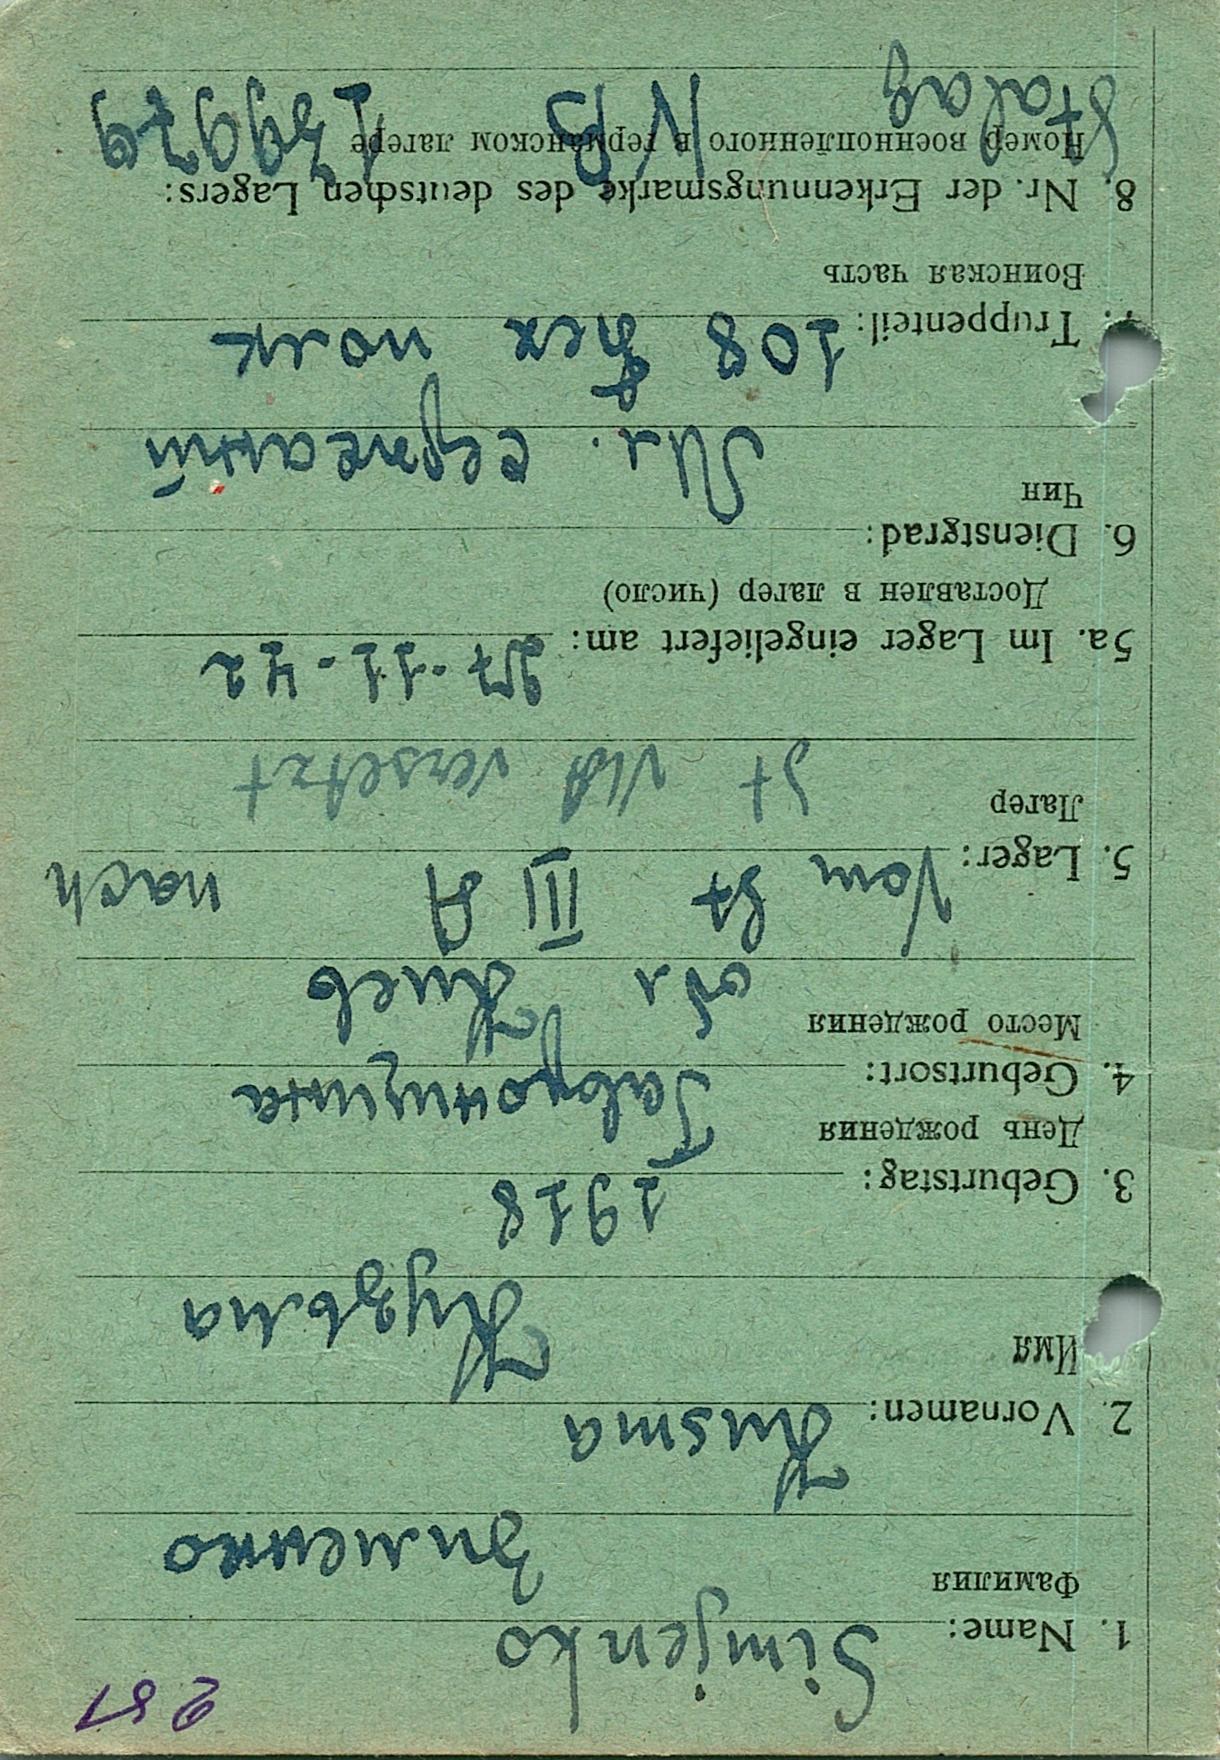 251
1. Name: Simjenko
Фамилия Зименко
2. Vornamen: Kusma
Имя Кузьма
3. Geburtstag: 1918
День рождения
4. Geburtsort: Гавронщина
Место рождения обл Киев
5. Lager: Vom St III A nach
Лагер St IV A versetzt
5a. Im Lager eingeliefert am: 27.11.42
Доставлен в лагер (число)
6. Dienstgrad:
Чин Мл. сержант
7. Truppenteil: 108 полк
Воинская часть
8. Nr. der Erkennungsmarke des deutschen Lagers:
Номер военнопленного в германском лагере
Stalag IV B 139979